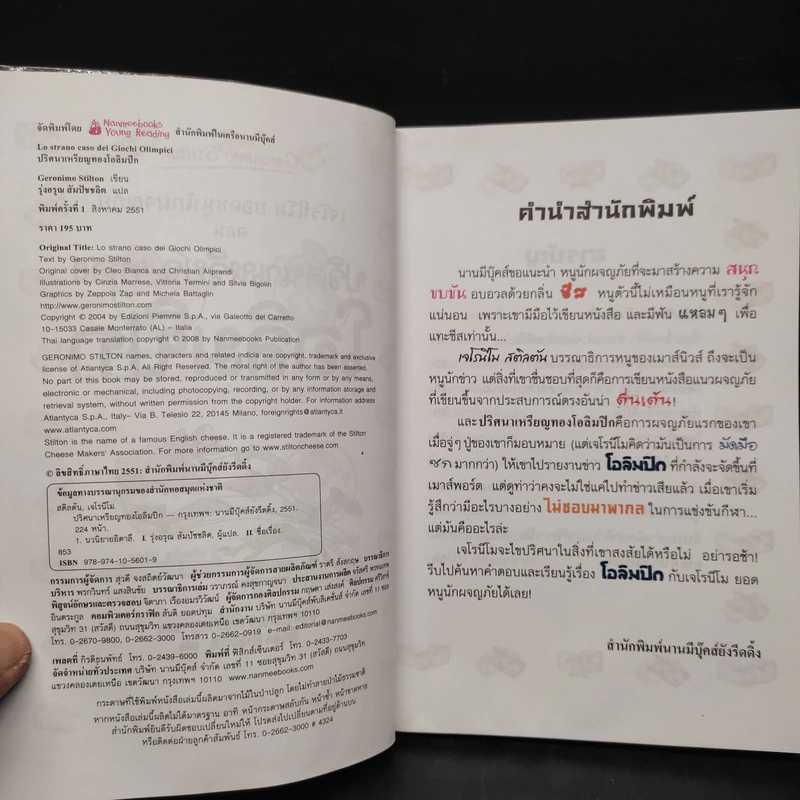 จัดพิมพ์โดย Nanmeebooks Young Reading สำนักพิมพ์ในเครือนานมีบุ๊คส์
Lo strano caso dei Giochi Olimpici
ปริศนาเหรียญทองโอลิมปิก
Geronimo Stilton เขียน
รุ่งอรุณ สัมปัชชลิต แปล
พิมพ์ครั้งที่ 1 สิงหาคม 2551
ราคา 195 บาท
Original Title: Lo strano caso dei Giochi Olimpici
Text by Geronimo Stilton
Original cover by Cleo Bianca and Christian Aliprandi
Illustrations by Cinzia Marrese, Vittoria Termini and Silvia Bigolin
Graphics by Zeppola Zap and Michela Battaglin
http://www.geronimostilton.com
Copyright © 2004 by Edizioni Piemme S.p.A., via Galeotto del Carretto
10–15033 Casale Monferrato (AL) – Italia
Thai language translation copyright © 2008 by Nanmeebooks Publication
GERONIMO STILTON names, characters and related indicia are copyright, trademark and exclusive
license of Atlantyca S.p.A. All Right Reserved. The moral right of the author has been asserted.
No part of this book may be stored, reproduced or transmitted in any form or by any means,
electronic or mechanical, including photocopying, recording, or by any information storage and
retrieval system, without written permission from the copyright holder. For information address
Atlantyca S.p.A., Italy– Via B. Telesio 22, 20145 Milano, foreignrights@atlantyca.it
www.atlantyca.com
Stilton is the name of a famous English cheese. It is a registered trademark of the Stilton
Cheese Makers' Association. For more information go to www.stiltoncheese.com
© ลิขสิทธิ์ภาษาไทย 2551: สำนักพิมพ์นานมีบุ๊คส์ยังรีดดิ้ง
ข้อมูลทางบรรณานุกรมของสำนักหอสมุดแห่งชาติ
สติลตัน, เจโรนีโม.
ปริศนาเหรียญทองโอลิมปิก — กรุงเทพฯ: นานมีบุ๊คส์ยังรีดดิ้ง, 2551.
224 หน้า.
1. นวนิยายอิตาลี. I. รุ่งอรุณ สัมปัชชลิต, ผู้แปล. II. ชื่อเรื่อง.
853
ISBN 978-974-10-5601-9
กรรมการผู้จัดการ สุวดี จงสถิตย์วัฒนา ผู้ช่วยกรรมการผู้จัดการสายผลิตภัณฑ์ ราตรี สังสกฤษ บรรณาธิการ
บริหาร พรกวินทร์ แสงสินชัย บรรณาธิการเล่ม วราภรณ์ คงสุขกาญจนา ประสานงานการผลิต
พิสูจน์อักษรและตรวจสอบ จิดาภา เรืองอมรวิวัฒน์ ผู้จัดการกองศิลปกรรม กฤษดา เส่งสงค์ ศิลปกรรม
อินตระกูล คอมพิวเตอร์กราฟิก สันติ ยอดปทุม สำนักงาน บริษัท นานมีบุ๊คส์พับลิเคชั่นส์ จำกัด เลขที่ 11 ซอย
สุขุมวิท 31 (สวัสดี) ถนนสุขุมวิท แขวงคลองเตยเหนือ เขตวัฒนา กรุงเทพฯ 10110
โทร. 0-2670-9800, 0-2662-3000 โทรสาร 0-2662-0919 e-mail: editorial@nanmeebooks.com
เพลตที่ กิรดิธนพัทธ์ โทร. 0-2439-6000 พิมพ์ที่ ฟิสิกส์เซ็นเตอร์ โทร. 0-2433-7703
จัดจำหน่ายทั่วประเทศ บริษัท นานมีบุ๊คส์ จำกัด เลขที่ 11 ซอยสุขุมวิท 31 (สวัสดี) ถนนสุขุมวิท
แขวงคลองเตยเหนือ เขตวัฒนา กรุงเทพฯ 10110 www.nanmeebooks.com
กระดาษที่ใช้พิมพ์หนังสือเล่มนี้ผลิตมาจากไม้ในป่าปลูก โดยไม่ทำลายป่าไม้ธรรมชาติ
หากหนังสือเล่มนี้ผลิตไม่ได้มาตรฐาน อาทิ หน้ากระดาษสลับกัน หน้าซ้ำ หน้าขาดหาย
สำนักพิมพ์ยินดีรับผิดชอบเปลี่ยนใหม่ให้ โปรดส่งไปเปลี่ยนตามที่อยู่ด้านบน
หรือติดต่อฝ่ายลูกค้าสัมพันธ์ โทร. 0-2662-3000 # 4324
คำนำสำนักพิมพ์
นานมีบุ๊คส์ขอแนะนำ หนูนักผจญภัยที่จะมาสร้างความ สนุก
ขบขัน อบอวลด้วยกลิ่น ชีส หนูตัวนี้ไม่เหมือนหนูที่เรารู้จัก
แน่นอน เพราะเขามีมือไว้เขียนหนังสือ และมีฟัน แหลมๆ เพื่อ
แทะชีสเท่านั้น...
เจโรนีโม สติลตัน บรรณาธิการหนูของเมาส์นิวส์ ถึงจะเป็น
หนูนักข่าว แต่สิ่งที่เขาชื่นชอบที่สุดก็คือการเขียนหนังสือแนวผจญภัย
ที่เขียนขึ้นจากประสบการณ์ตรงอันน่า ตื่นเต้น!
และปริศนาเหรียญทองโอลิมปิกคือการผจญภัยแรกของเขา
เมื่อจู่ๆ ปู่ของเขาก็มอบหมาย (แต่เจโรนีโมคิดว่ามันเป็นการ มัดมือ
ชก มากกว่า) ให้เขาไปรายงานข่าว โอลิมปิก ที่กำลังจะจัดขึ้นที่
เมาส์พอร์ต แต่ดูท่าว่าคงจะไม่ใช่แค่ไปทำข่าวเสียแล้ว เมื่อเขาเริ่ม
รู้สึกว่ามีอะไรบางอย่าง ไม่ชอบมาพากล ในการแข่งขันกีฬา...
แต่มันคืออะไรล่ะ
เจโรนีโมจะไขปริศนาในสิ่งที่เขาสงสัยได้หรือไม่ อย่ารอช้า!
รีบไปค้นหาคำตอบและเรียนรู้เรื่อง โอลิมปิก กับเจโรนีโม ยอด
หนูนักผจญภัยได้เลย!
สำนักพิมพ์นานมีบุ๊คส์ยังรีดดิ้ง